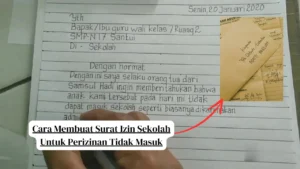 Senin, 20 Januari 2020
Yth
Bapak/Ibu guru wali kelas / Ruang 2
SMP N 17 Santui
Di - Sekolah
Dengan hormat
Dengan ini saya selaku orang tua dari
Samsul Hadi ingin memberitahukan bahwa
anak kami tersebut pada hari ini tidak
dapat masuk sekolah seperti biasanya dikarenakan
Cara Membuat Surat Izin Sekolah
Untuk Perizinan Tidak Masuk